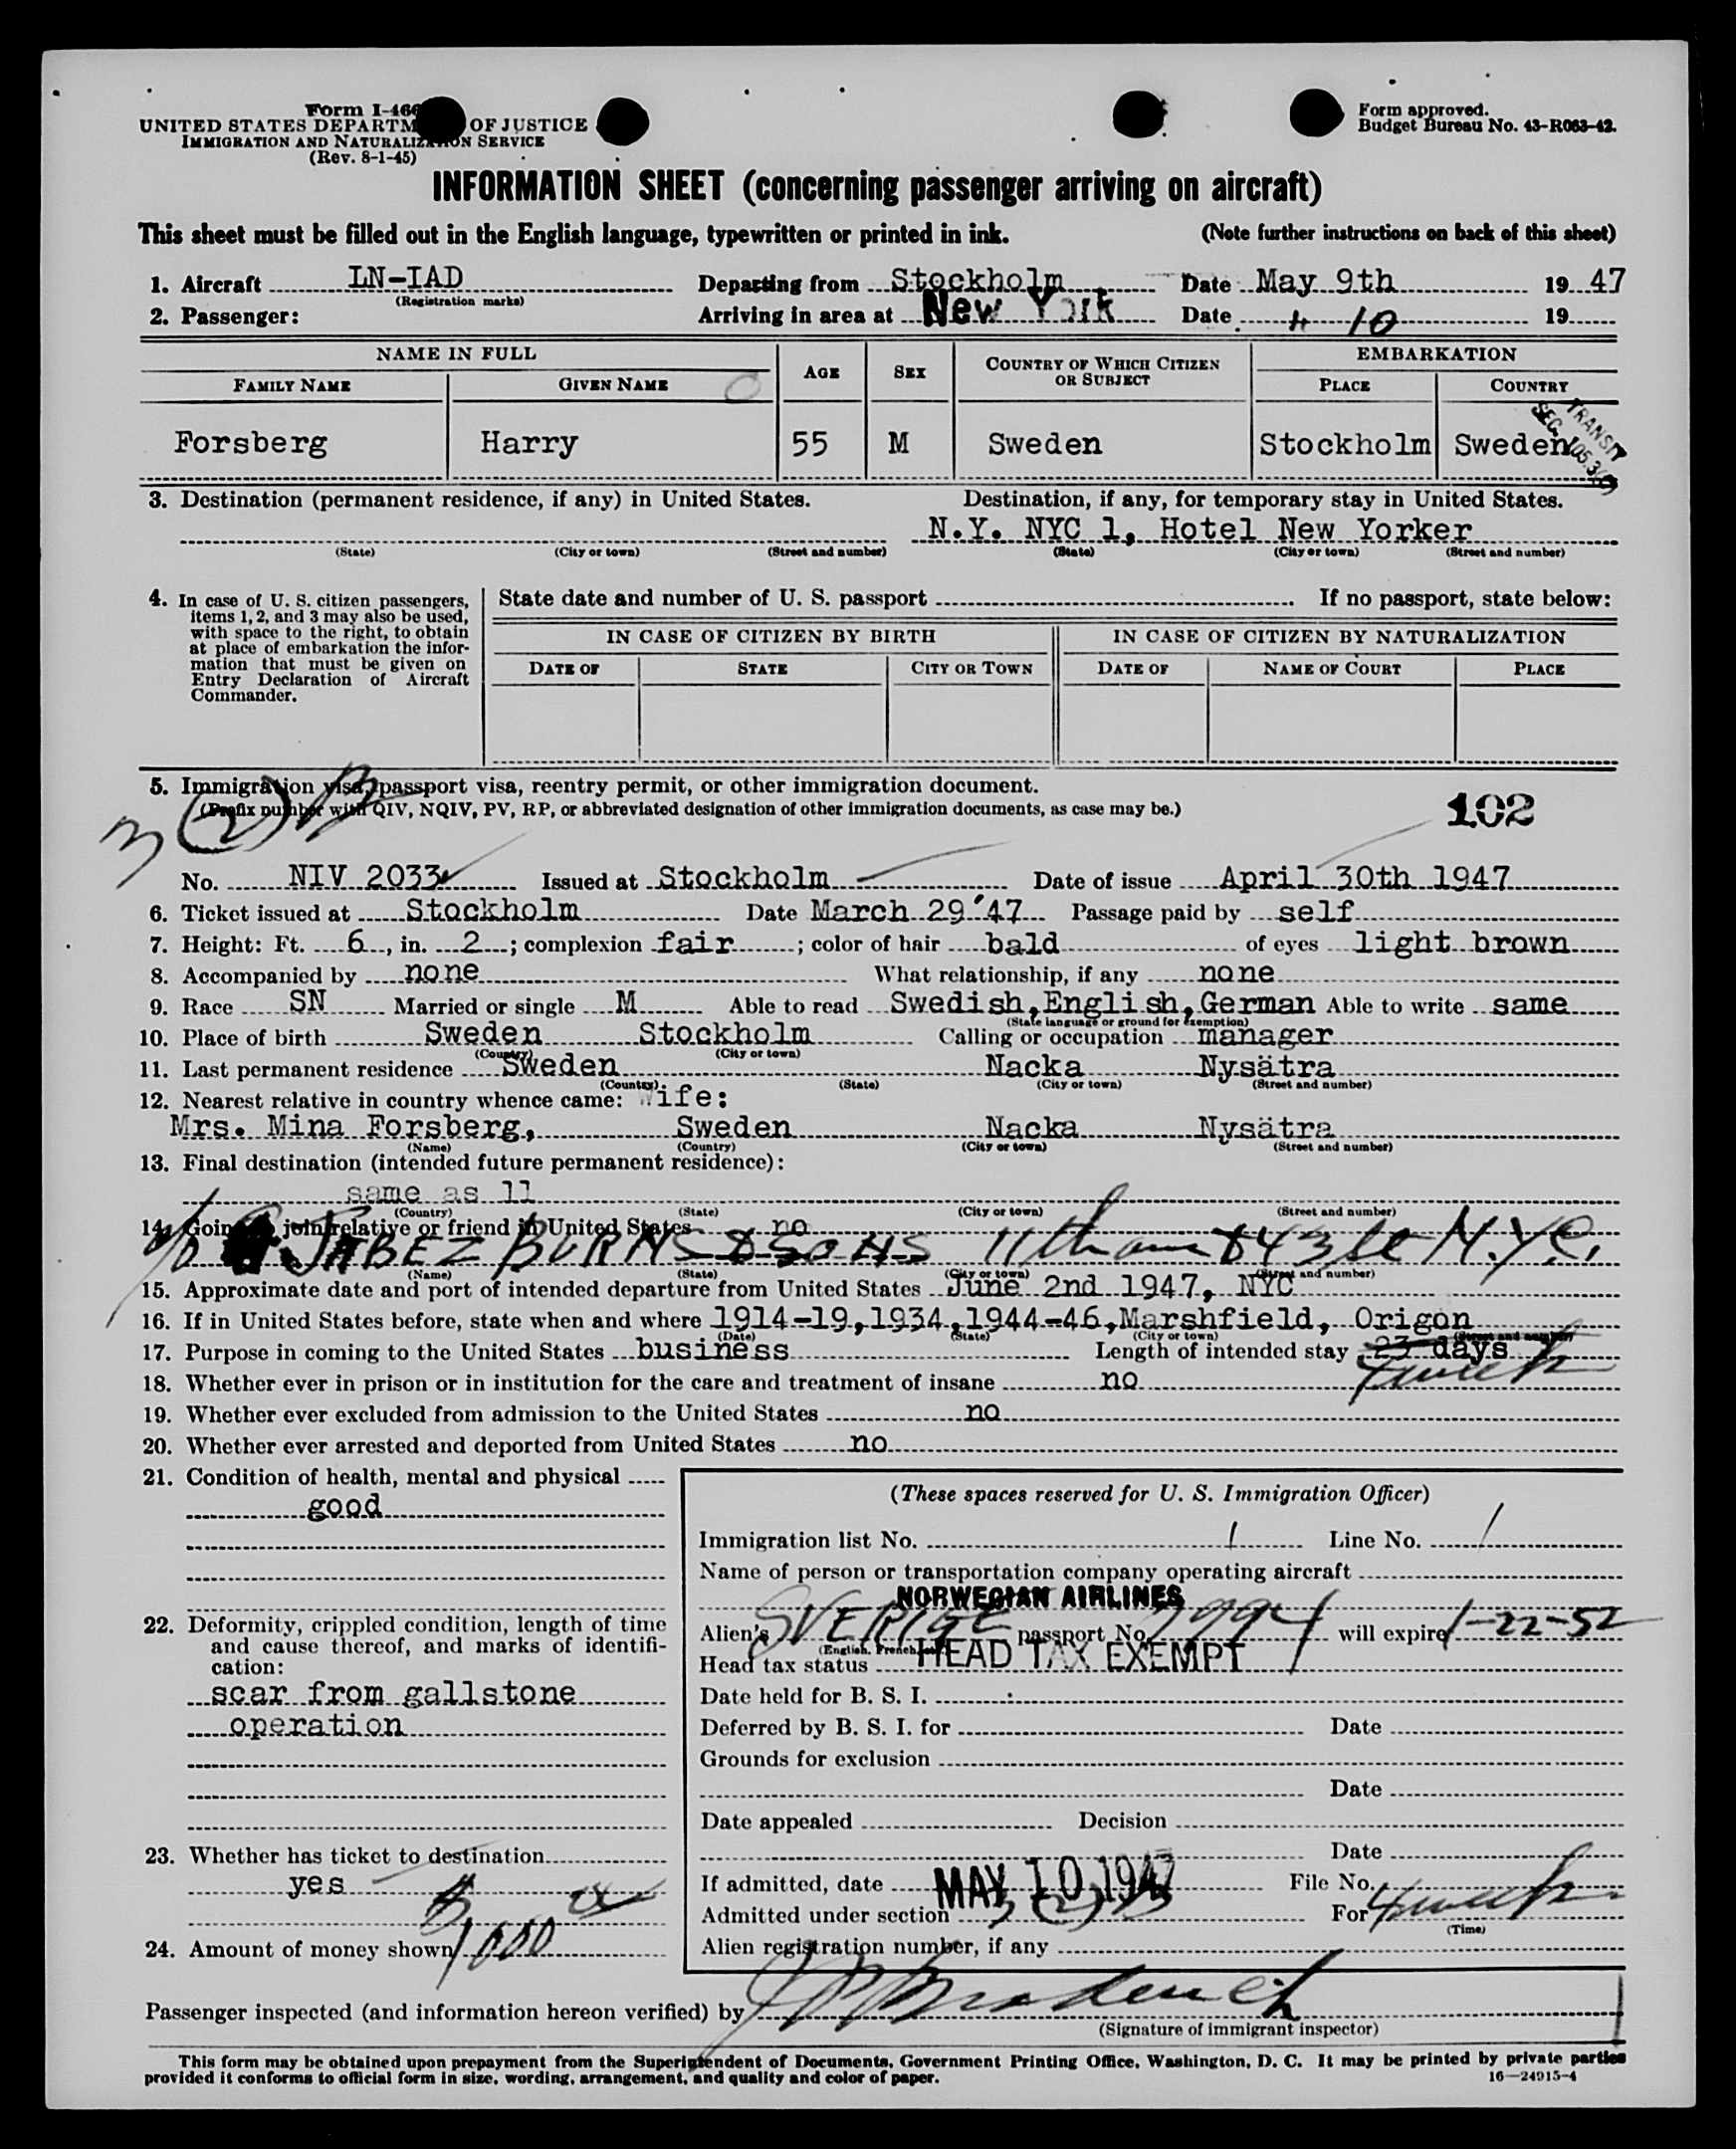 Form I-466
UNITED STATES DEPARTM OF JUSTICE
IMMIGRATION AND NATURALIZATION SERVICE
(Rev. 8-1-45)
Form approved.
Budget Bureau No. 43-R063-42.
INFORMATION SHEET (concerning passenger arriving on aircraft)
This sheet must be filled out in the English language, typewritten or printed in ink. (Note further instructions on back of this sheet)
1. Aircraft LN-IAD Departing from Stockholm Date May 9th 1947
(Registration marks)
2. Passenger: Arriving in area at New York Date 10 19
NAME IN FULL AGE SEX COUNTRY OF WHICH CITIZEN OR SUBJECT EMBARKATION
FAMILY NAME GIVEN NAME PLACE COUNTRY
Forsberg Harry 55 M Sweden Stockholm Sweden
TRANSIT
SEC. 105.3
3. Destination (permanent residence, if any) in United States. Destination, if any, for temporary stay in United States.
N.Y. NYC 1, Hotel New Yorker
(State) (City or town) (Street and number) (State) (City or town) (Street and number)
4. In case of U. S. citizen passengers, items 1, 2, and 3 may also be used, with space to the right, to obtain at place of embarkation the information that must be given on Entry Declaration of Aircraft Commander.
State date and number of U. S. passport If no passport, state below:
IN CASE OF CITIZEN BY BIRTH IN CASE OF CITIZEN BY NATURALIZATION
DATE OF STATE CITY OR TOWN DATE OF NAME OF COURT PLACE
5. Immigration visa, passport visa, reentry permit, or other immigration document.
(Prefix number with QIV, NQIV, PV, RP, or abbreviated designation of other immigration documents, as case may be.)
3 (2) B
102
No. NIV 2033 Issued at Stockholm Date of issue April 30th 1947
6. Ticket issued at Stockholm Date March 29 '47 Passage paid by self
7. Height: Ft. 6, in. 2; complexion fair; color of hair bald of eyes light brown
8. Accompanied by none What relationship, if any none
9. Race SN Married or single M Able to read Swedish, English, German Able to write same
(State language or ground for exemption)
10. Place of birth Sweden Stockholm Calling or occupation manager
(Country) (City or town)
11. Last permanent residence Sweden Nacka Nysätra
(Country) (State) (City or town) (Street and number)
12. Nearest relative in country whence came: Wife:
Mrs. Mina Forsberg, Sweden Nacka Nysätra
(Name) (Country) (City or town) (Street and number)
13. Final destination (intended future permanent residence):
same as 11
(Country) (State) (City or town) (Street and number)
14. Going to join relative or friend in United States no
c/o JABEZ BURNS & SONS 11th ave & 43 St N.Y.C.
(Name) (State) (City or town) (Street and number)
15. Approximate date and port of intended departure from United States June 2nd 1947, NYC
16. If in United States before, state when and where 1914-19, 1934, 1944-46, Marshfield, Origon
(Date) (State) (City or town) (Street and number)
17. Purpose in coming to the United States business Length of intended stay 23 days
4 weeks
18. Whether ever in prison or in institution for the care and treatment of insane no
19. Whether ever excluded from admission to the United States no
20. Whether ever arrested and deported from United States no
21. Condition of health, mental and physical
good
22. Deformity, crippled condition, length of time and cause thereof, and marks of identification:
scar from gallstone
operation
23. Whether has ticket to destination
yes
24. Amount of money shown $1000
(These spaces reserved for U. S. Immigration Officer)
Immigration list No. 1 Line No. 1
Name of person or transportation company operating aircraft
NORWEGIAN AIRLINES
Alien's SVERIGE passport No. 7994 will expire 1-22-52
Head tax status HEAD TAX EXEMPT
Date held for B. S. I.
Deferred by B. S. I. for Date
Grounds for exclusion
Date
Date appealed Decision
Date
If admitted, date MAY 10 1947 File No.
Admitted under section 3 (2) B For 4 weeks
(Time)
Alien registration number, if any
Passenger inspected (and information hereon verified) by
(Signature of immigrant inspector)
This form may be obtained upon prepayment from the Superintendent of Documents, Government Printing Office, Washington, D. C. It may be printed by private parties
provided it conforms to official form in size, wording, arrangement, and quality and color of paper.
16—24915-4